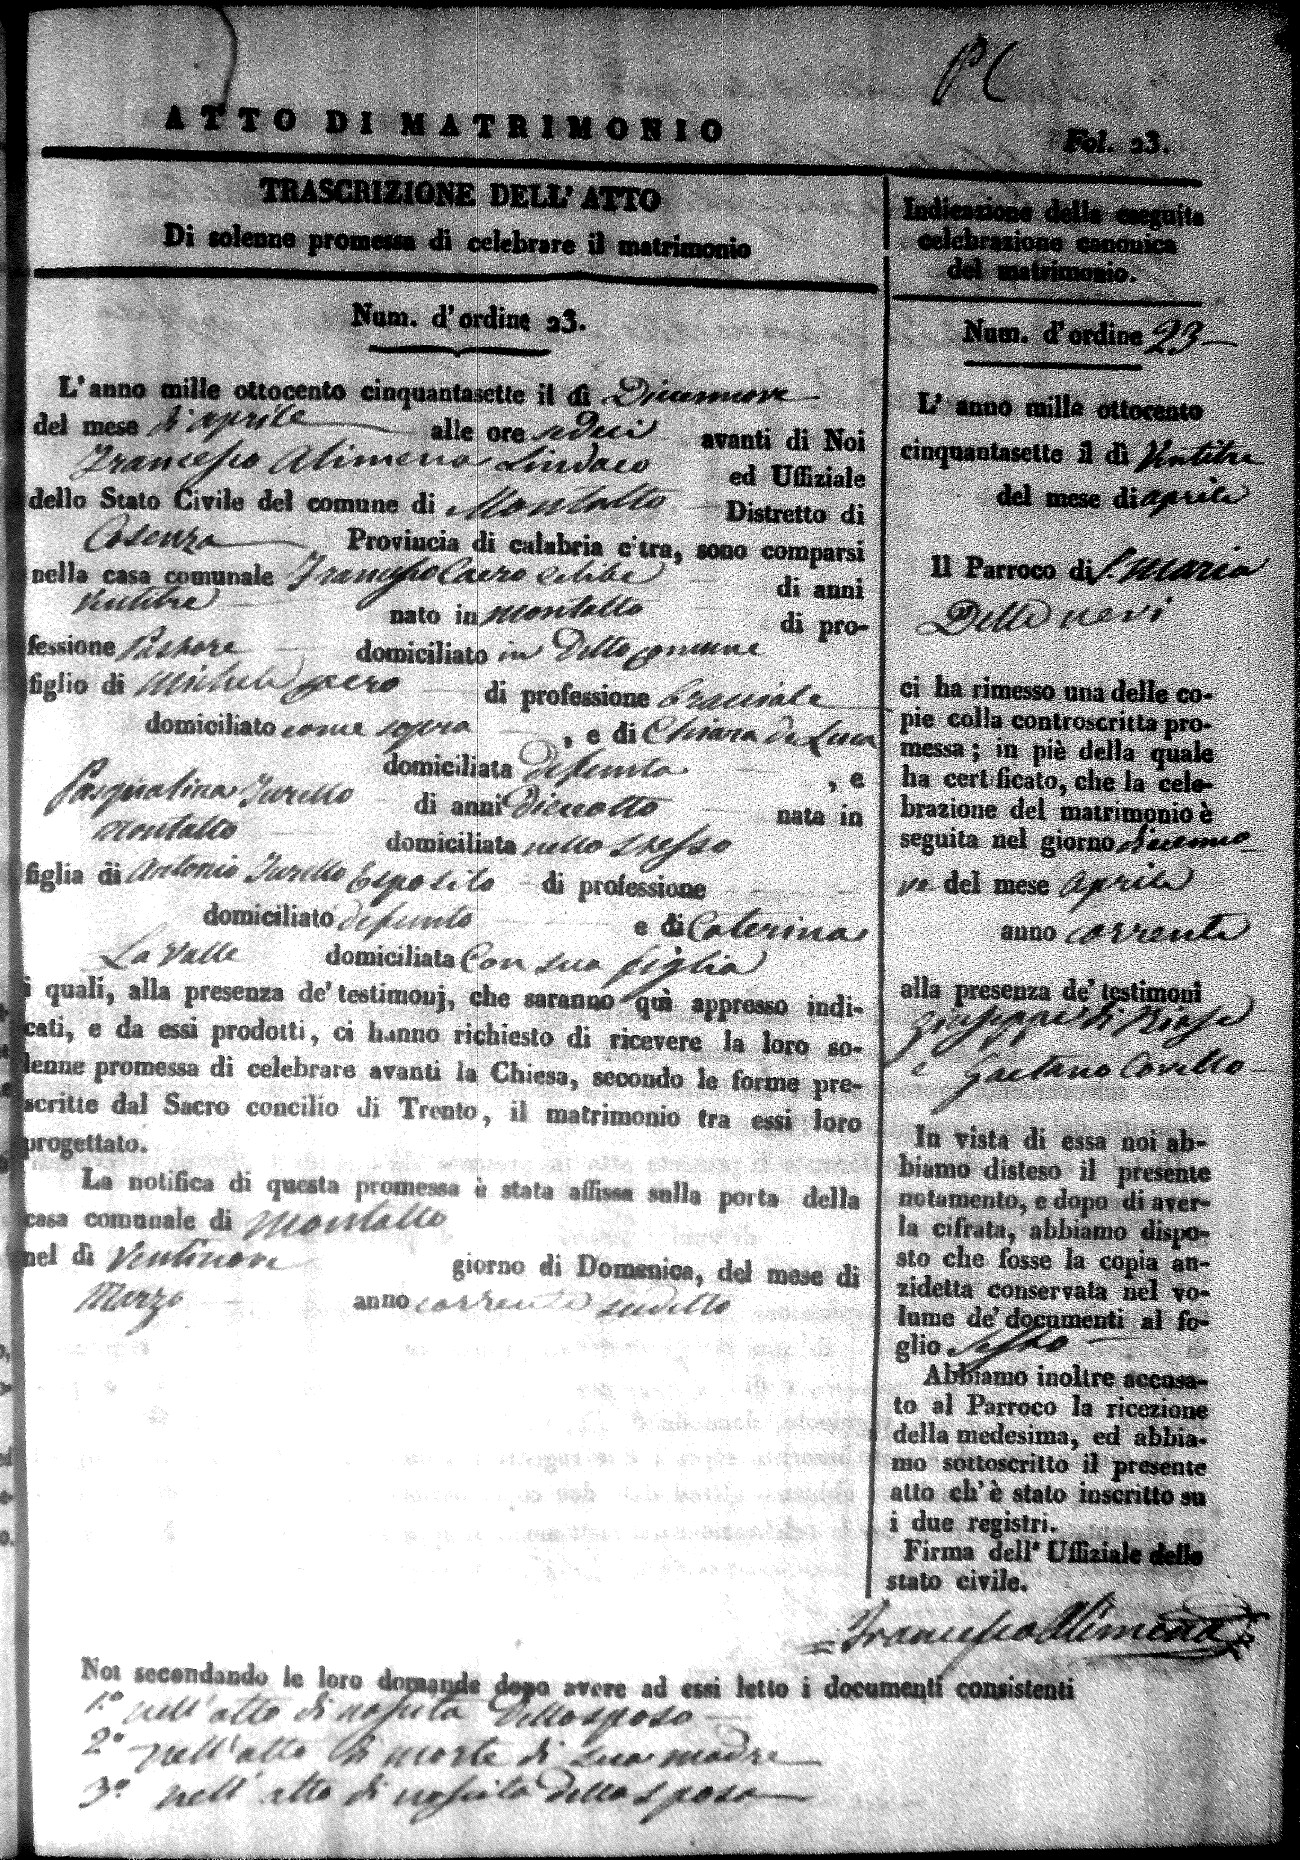 ATTO DI MATRIMONIO
Fol. 23.
TRASCRIZIONE DELL' ATTO
Di solenne promessa di celebrare il matrimonio
Num. d'ordine 23.
L'anno mille ottocento cinquantasette il dì Diecennove
del mese di aprile alle ore sedici avanti di Noi
Francesco Alimena Sindaco ed Uffiziale
dello Stato Civile del comune di Montalto Distretto di
Cosenza Provincia di calabria citra, sono comparsi
nella casa comunale Francesco Caero celibe di anni
ventitre nato in Montalto di pro-
fessione domiciliato in Detto comune
figlio di Michele Caero di professione bracciale
domiciliato come sopra , e di Chiara de Luca
domiciliata defunta , e
Pasqualina Turello di anni Dieciotto nata in
Montalto domiciliata nello stesso
figlia di Antonio Turello Esposito di professione
domiciliato defunto e di Caterina
La Valle domiciliata Con sua figlia
i quali, alla presenza de' testimonj, che saranno quì appresso indi-
cati, e da essi prodotti, ci hanno richiesto di ricevere la loro so-
lenne promessa di celebrare avanti la Chiesa, secondo le forme pre-
scritte dal Sacro concilio di Trento, il matrimonio tra essi loro
progettato.
La notifica di questa promessa è stata affissa sulla porta della
casa comunale di Montalto
nel dì Ventinove giorno di Domenica, del mese di
Marzo anno corrente sudetto
Noi secondando le loro domande dopo avere ad essi letto i documenti consistenti
1.° nell'atto di nascita dello sposo
2° nell'atto di morte di sua madre
3° nell'atto di nascita della sposa
Indicazione della eseguita
celebrazione canonica
del matrimonio.
Num. d'ordine 23
L' anno mille ottocento
cinquantasette il dì Ventitre
del mese di aprile
Il Parroco di S. Maria
Della nevi
ci ha rimesso una delle co-
pie colla controscritta pro-
messa; in piè della quale
ha certificato, che la cele-
brazione del matrimonio è
seguita nel giorno diecenno-
ve del mese Aprile
anno corrente
alla presenza de' testimoni
Giuseppe di Biase
e Gaetano Covello
In vista di essa noi ab-
biamo disteso il presente
notamento, e dopo di aver-
la cifrata, abbiamo dispo-
sto che fosse la copia an-
zidetta conservata nel vo-
lume de' documenti al fo-
glio sesto
Abbiamo inoltre accusa-
to al Parroco la ricezione
della medesima, ed abbia-
mo sottoscritto il presente
atto ch'è stato inscritto su
i due registri.
Firma dell' Uffiziale dello
stato civile.
Francesco Alimena